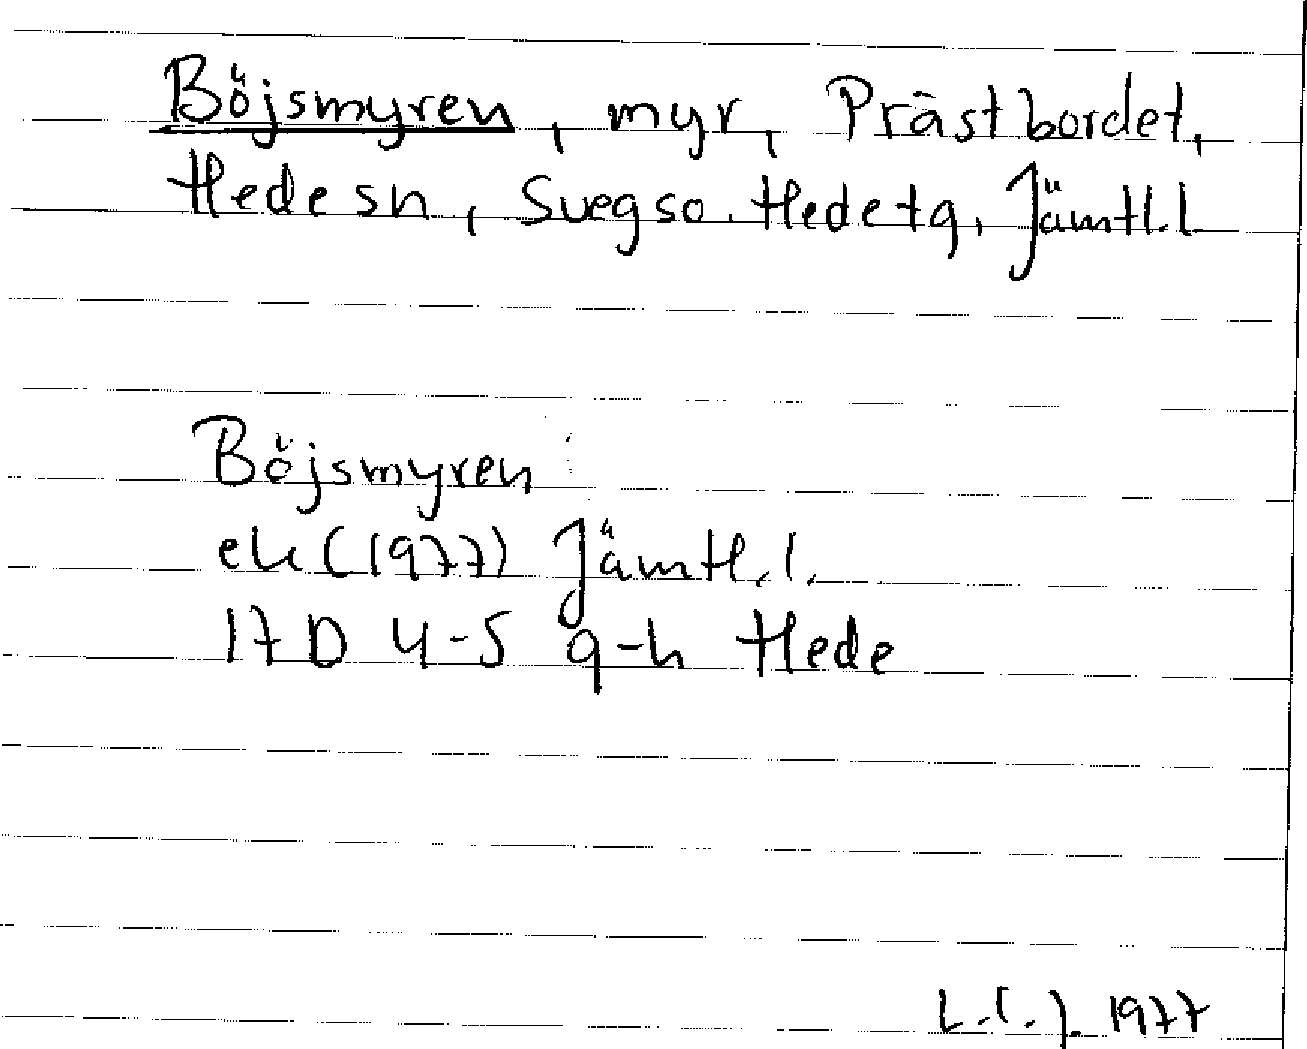 Böjsmyren, myr, Prästbordet,
Hede sn, Svegs o. Hede tg, Jämtl. l
Böjsmyren
ek (1977) Jämtl. l.
17 D 4-5 g-h Hede
1977